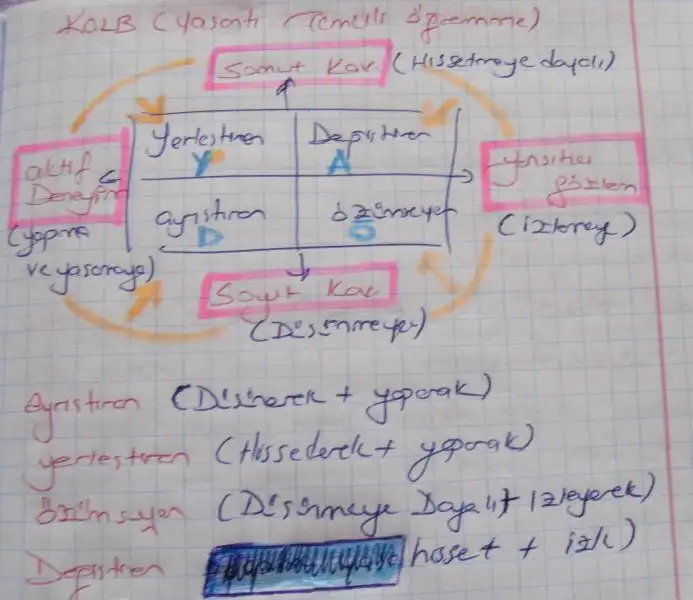 KOLB (Yasantı Temelli öğrenme)
Somut Kav. (Hissetmeye dayalı)
Yerlestiren
Y
Değistiren
A
aktif
Deneyim
(yapma
ve yasamaya)
yansıtıcı
gözlem
(izlemeye)
ayrıstıran
D
özümseyen
Ö
Soyut Kav.
(Düsünmeye)
Ayrıstıran (Düsünerek + yaparak)
yerlestiren (Hissederek + yaparak)
özümseyen (Düsünmeye Dayalı + izleyerek)
Degistiren hisset + izle)